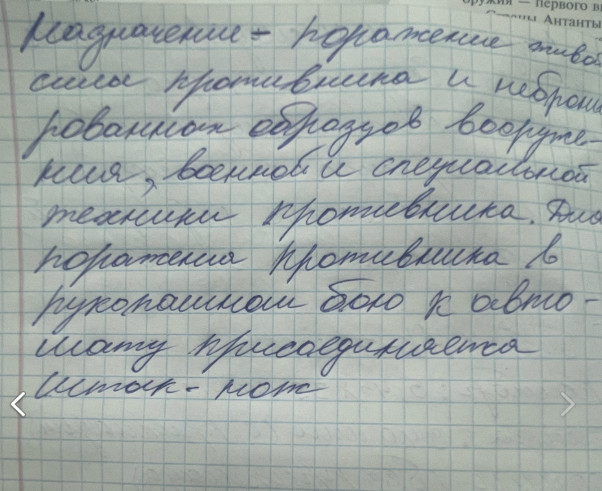 оружия — первого
Страны Антанты
Назначение - поражение живой
силы противника и неброни
рованных образцов вооруже-
ния, военной и специальной
техники противника. Для
поражения противника в
рукопашном бою к авто-
мату присоединяется
штык-нож